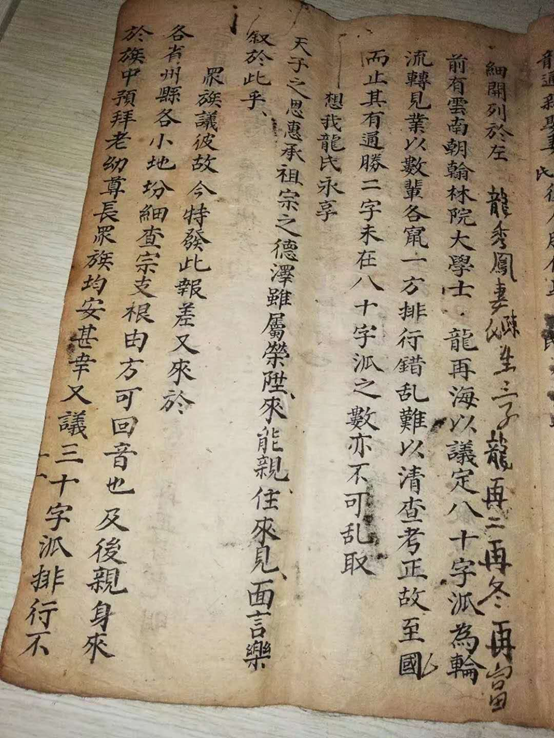 細開列於左 龍秀鳳妻陳氏生三子龍再二再冬再富
前有雲南朝翰林院大學士龍再海以議定八十字派為輪
流轉見業以數輩各甯一方排行錯乱難以清查考正故至國
而止其有通勝二字未在八十字派之數亦不可乱取
想我龍氏永享
天子之恩惠承祖宗之德澤雖屬榮陞來能親住來見面言樂
叙於此乎
眾族議彼故今特發此報差又來於
各省州縣各小地坋細查宗支根由方可回音也及後親身來
於族中預拜老幼尊長眾族均安甚幸又議三十字派排行不